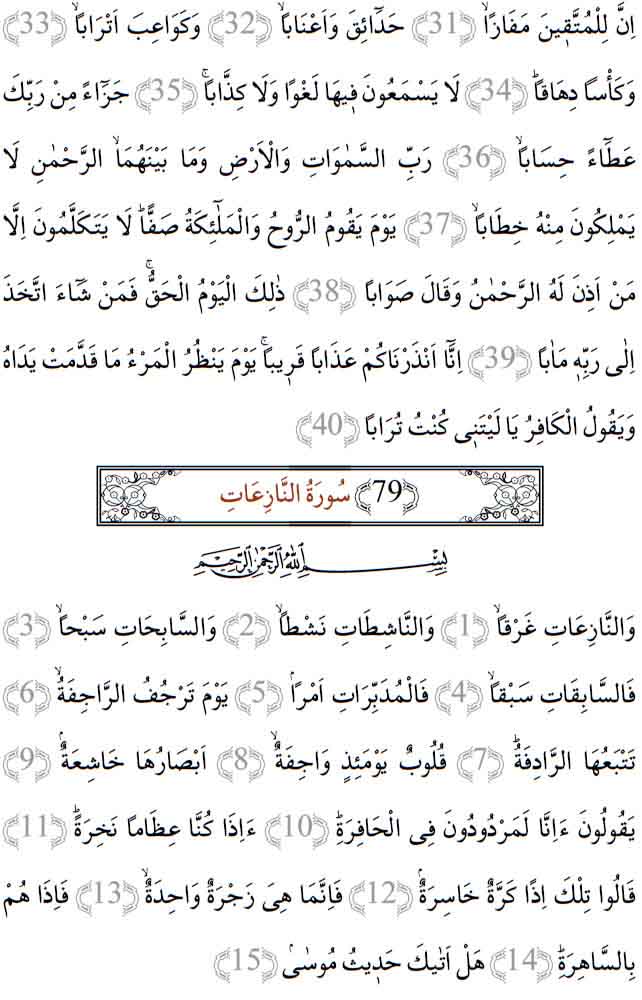 اِنَّ لِلْمُتَّقٖينَ مَفَازاًۙ (31) حَدَٓائِقَ وَاَعْنَاباًۙ (32) وَكَوَاعِبَ اَتْرَاباًۙ (33)
وَكَأْساً دِهَاقاًؕ (34) لَا يَسْمَعُونَ فٖيهَا لَغْواً وَلَا كِذَّاباًۚ (35) جَزَٓاءً مِنْ رَبِّكَ
عَطَٓاءً حِسَاباًۙ (36) رَبِّ السَّمٰوَاتِ وَالْاَرْضِ وَمَا بَيْنَهُمَاۙ الرَّحْمٰنِ لَا
يَمْلِكُونَ مِنْهُ خِطَاباًۙ (37) يَوْمَ يَقُومُ الرُّوحُ وَالْمَلٰٓئِكَةُ صَفًّاؕ لَا يَتَكَلَّمُونَ اِلَّا
مَنْ اَذِنَ لَهُ الرَّحْمٰنُ وَقَالَ صَوَاباً (38) ذٰلِكَ الْيَوْمُ الْحَقُّۚ فَمَنْ شَٓاءَ اتَّخَذَ
اِلٰى رَبِّهٖ مَاٰباً (39) اِنَّٓا اَنْذَرْنَاكُمْ عَذَاباً قَرٖيباًۚ يَوْمَ يَنْظُرُ الْمَرْءُ مَا قَدَّمَتْ يَدَاهُ
وَيَقُولُ الْكَافِرُ يَا لَيْتَنٖى كُنْتُ تُرَاباً (40)
(79) سُورَةُ النَّازِعَاتِ
بِسْمِ اللّٰهِ الرَّحْمٰنِ الرَّحٖيمِ
وَالنَّازِعَاتِ غَرْقاًۙ (1) وَالنَّاشِطَاتِ نَشْطاًۙ (2) وَالسَّابِحَاتِ سَبْحاًۙ (3)
فَالسَّابِقَاتِ سَبْقاًۙ (4) فَالْمُدَبِّرَاتِ اَمْراًۘ (5) يَوْمَ تَرْجُفُ الرَّاجِفَةُۙ (6)
تَتْبَعُهَا الرَّادِفَةُؕ (7) قُلُوبٌ يَوْمَئِذٍ وَاجِفَةٌۙ (8) اَبْصَارُهَا خَاشِعَةٌۘ (9)
يَقُولُونَ ءَاِنَّا لَمَرْدُودُونَ فِى الْحَافِرَةِؕ (10) ءَاِذَا كُنَّا عِظَاماً نَخِرَةًؕ (11)
قَالُوا تِلْكَ اِذًا كَرَّةٌ خَاسِرَةٌۘ (12) فَاِنَّمَا هِىَ زَجْرَةٌ وَاحِدَةٌۙ (13) فَاِذَا هُمْ
بِالسَّاهِرَةِؕ (14) هَلْ اَتٰيكَ حَدٖيثُ مُوسٰىۘ (15)